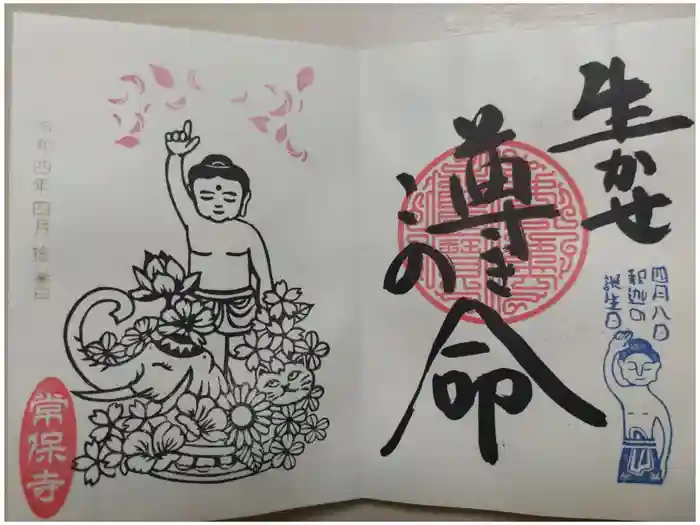 生かせ
尊き
この
命
四月八日
釈迦の
誕生日
令和四年四月参拝日
常保寺